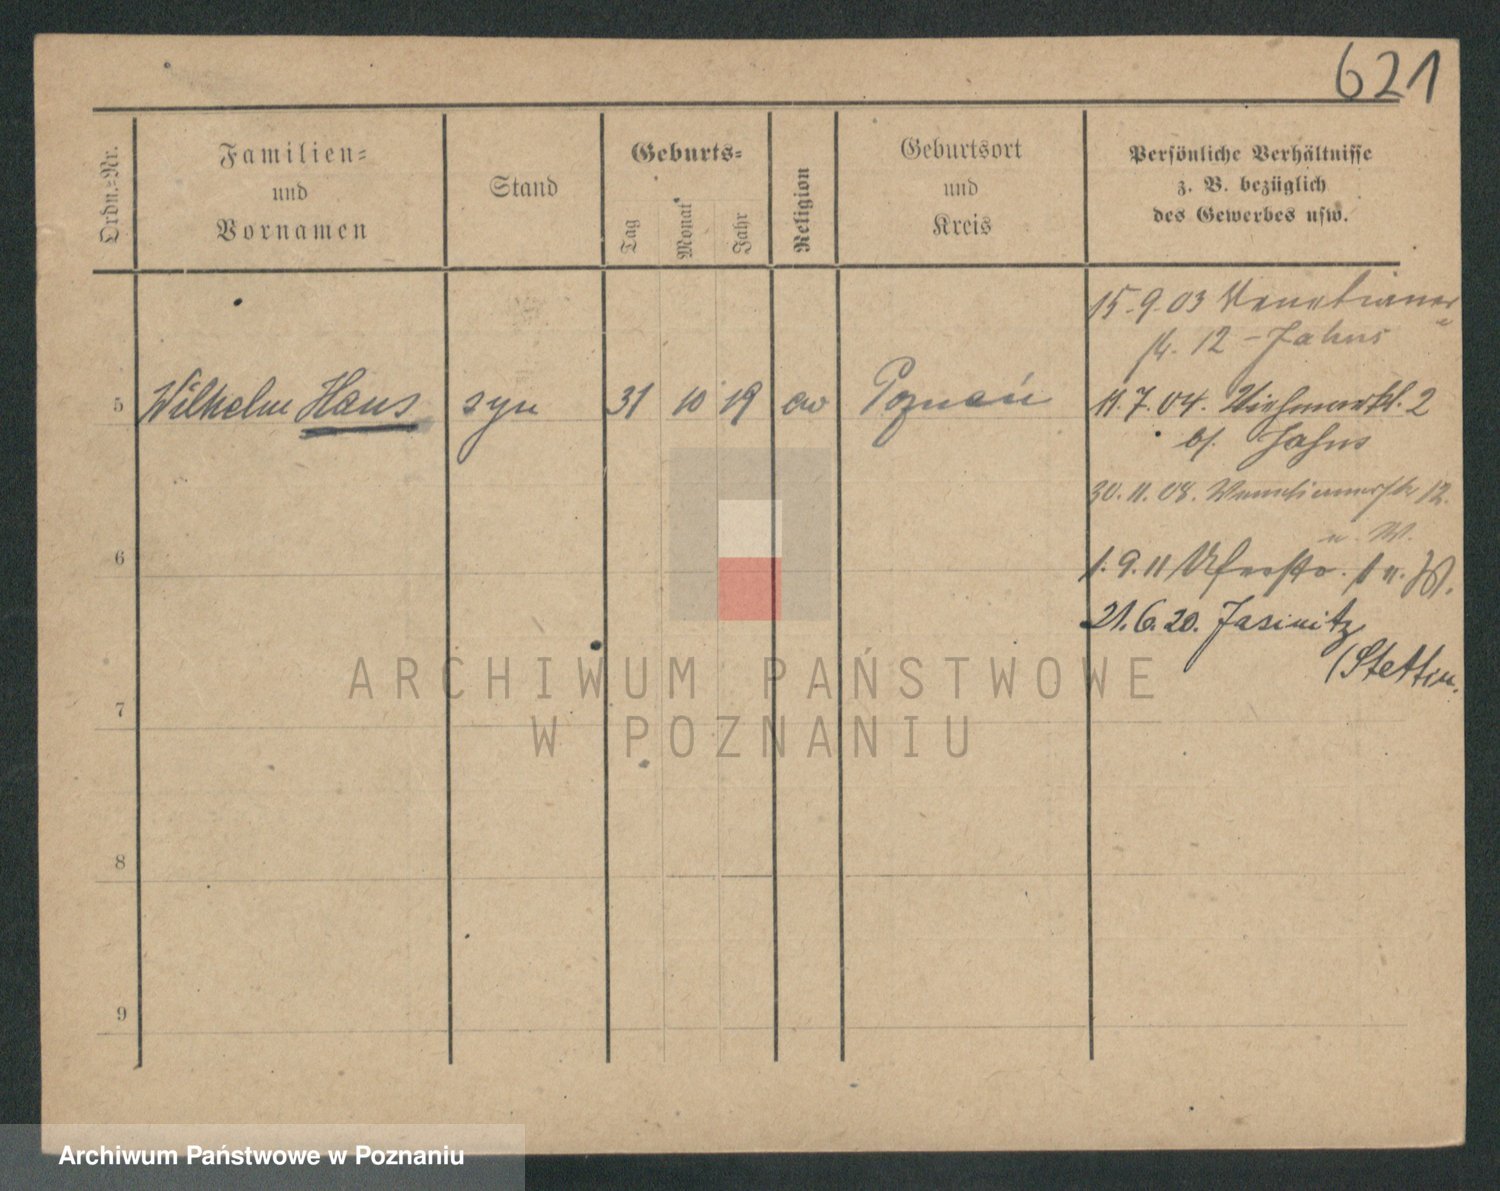 621
Ordn.=Nr.
Familien=
und
Vornamen
Stand
Geburts=
Tag
Monat
Jahr
Religion
Geburtsort
und
Kreis
Persönliche Verhältnisse
z. B. bezüglich
des Gewerbes usw.
15.9.03 Venetianer
12 - Jahns
5 Wilhelm Hans syn 31 10 19 ew Poznań 11.7.04. Viehmarkt. 2
b/. Jahns
30.11.08. Venetianerstr 12.
u. W.
6
1.9.11 Uferstr. 1 u. W.
21.6.20. Jasinitz
(Stettin.
7
8
9
ARCHIWUM PAŃSTWOWE
W POZNANIU
Archiwum Państwowe w Poznaniu